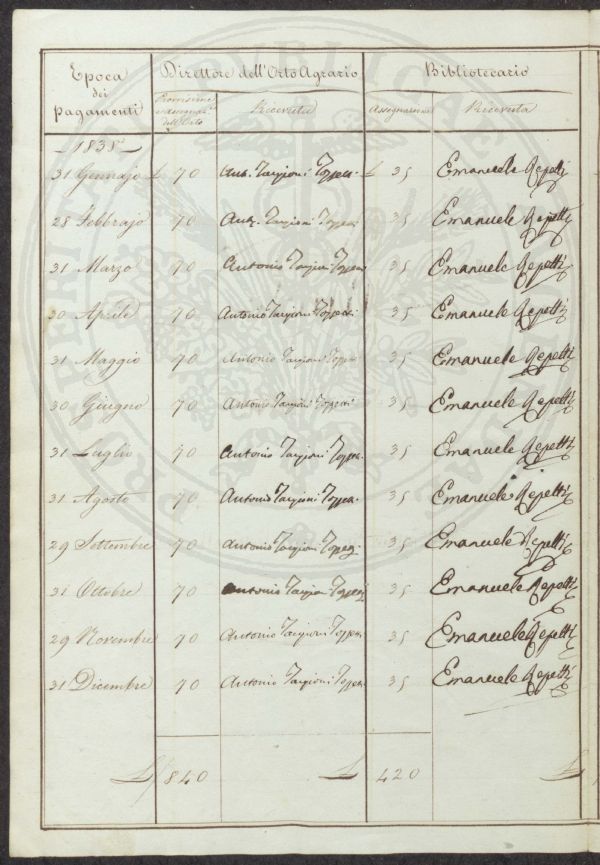 Epoca dei pagamenti | Direttore dell'Orto Agrario | Bibliotecario
Provvisione | Ricevuta | Assegnazione | Ricevuta
dell'Orto
1838
31 Gennajo £ 70 Ant. Targioni Tozzetti £ 35 Emanuele Repetti
28 Febbrajo 70 Ant. Targioni Tozzetti 35 Emanuele Repetti
31 Marzo 70 Antonio Targioni Tozzetti 35 Emanuele Repetti
30 Aprile 70 Antonio Targioni Tozzetti 35 Emanuele Repetti
31 Maggio 70 Antonio Targioni Tozzetti 35 Emanuele Repetti
30 Giugno 70 Antonio Targioni Tozzetti 35 Emanuele Repetti
31 Luglio 70 Antonio Targioni Tozzetti 35 Emanuele Repetti
31 Agosto 70 Antonio Targioni Tozzetti 35 Emanuele Repetti
29 Settembre 70 Antonio Targioni Tozzetti 35 Emanuele Repetti
31 Ottobre 70 Antonio Targioni Tozzetti 35 Emanuele Repetti
29 Novembre 70 Antonio Targioni Tozzetti 35 Emanuele Repetti
31 Dicembre 70 Antonio Targioni Tozzetti 35 Emanuele Repetti
£ 840 £ 420 £